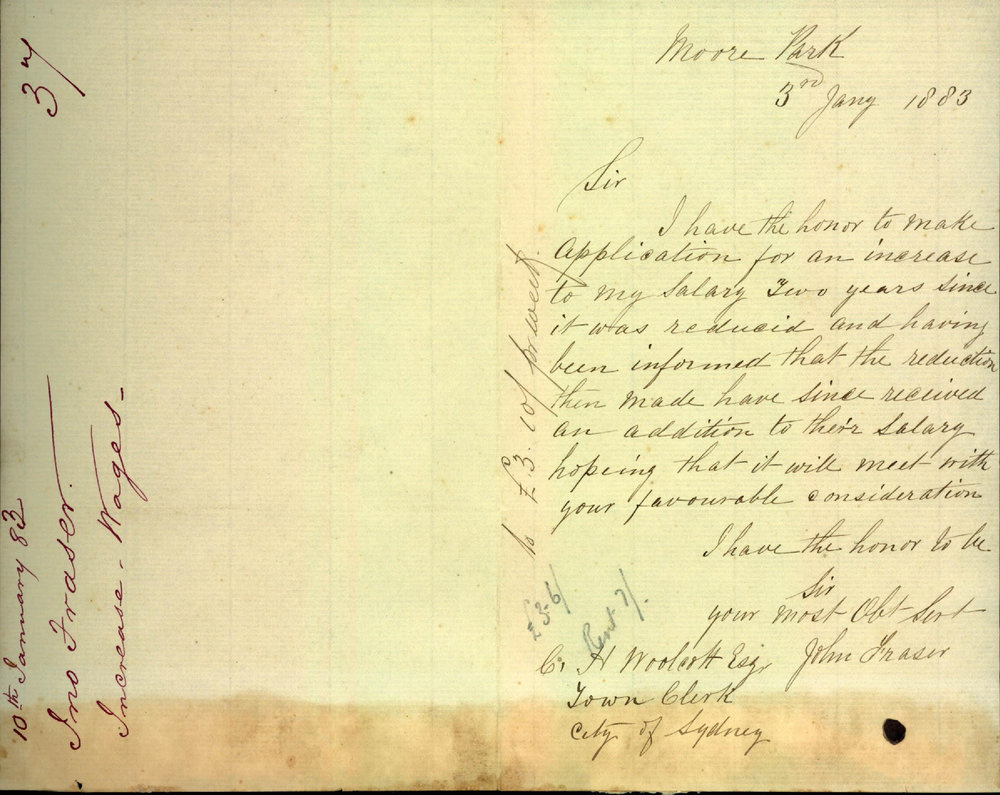 Moore Park
3rd Jany 1883
Sir
I have the honor to make
application for an increase
to my Salary Two years since
it was reducid and having
been informed that the reduction
then made have since received
an addition to their Salary
hopeing that it will meet with
your favourable consideration
I have the honor to be
Sir
your most Obt Sert
John Fraser
C. H Woolcott Esq.
Town Clerk
City of Sydney
to £3. 10/ per week.
£3-6/
Rent 7/.
37
10th January 83
Jno Fraser.
Increase. Wages-